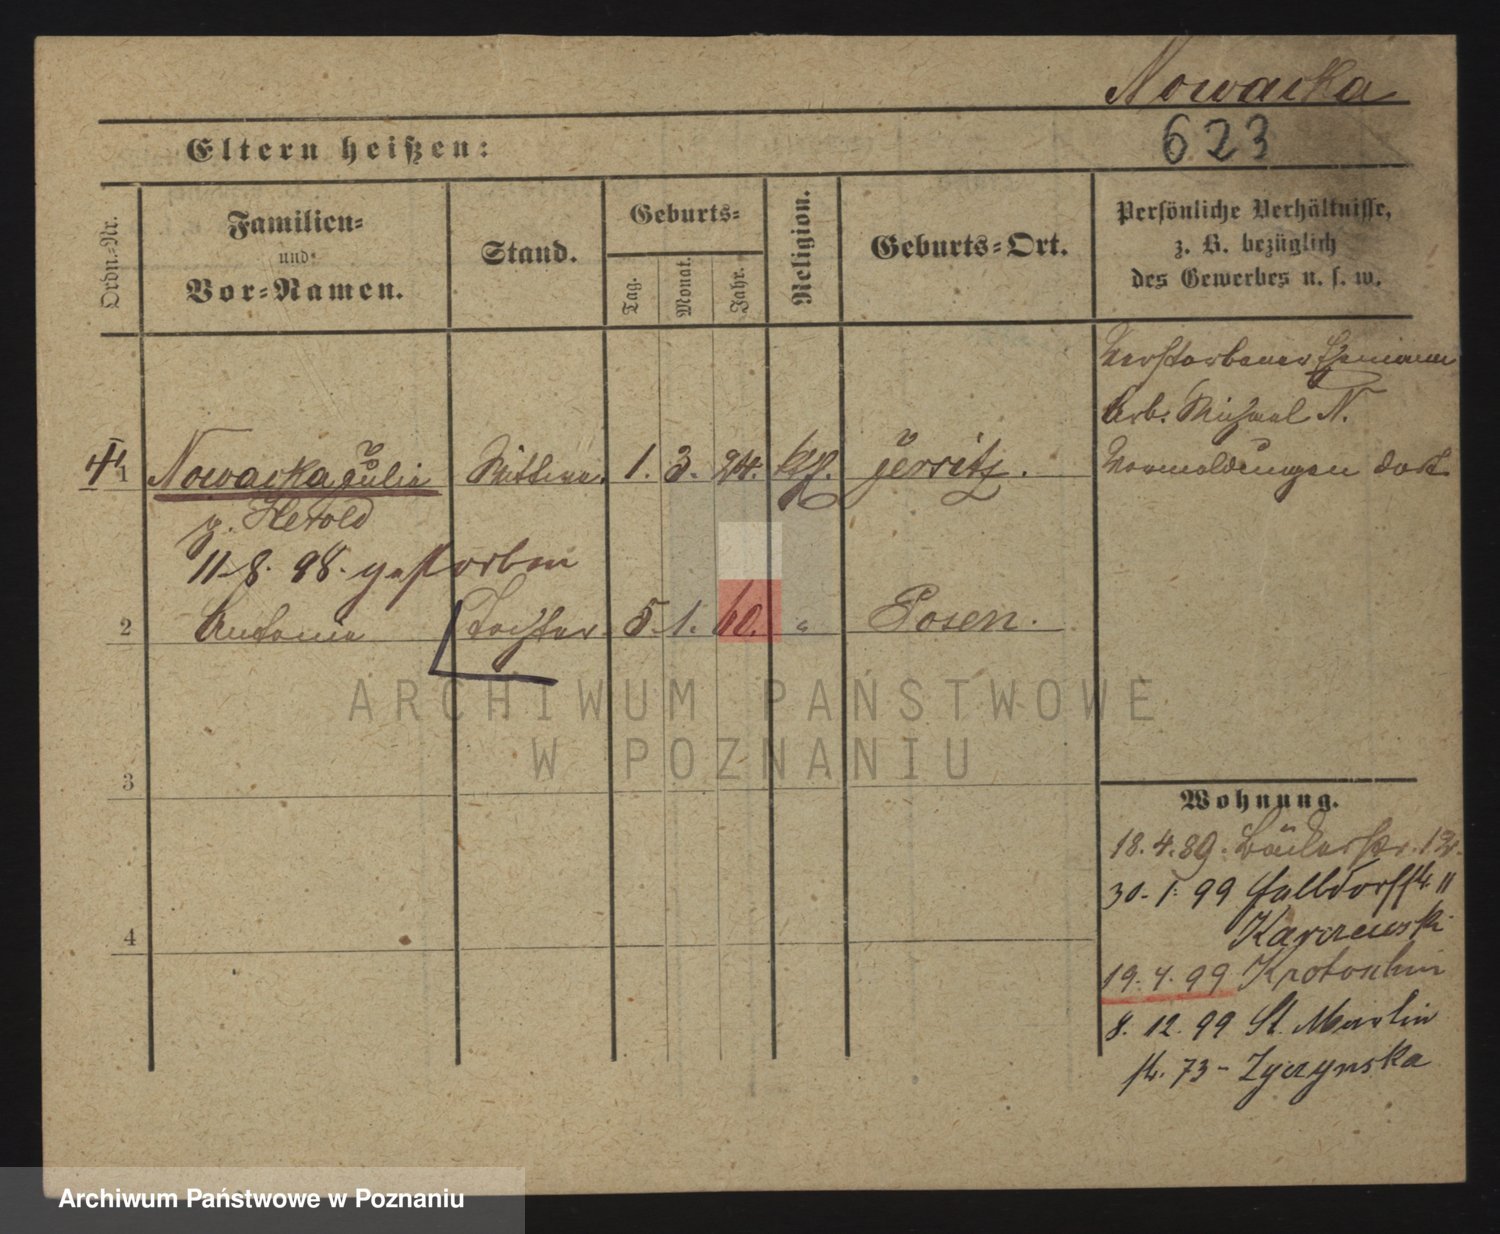 Nowacka
623
Eltern heißen:
Ordn.-Nr.
Familien-
und
Vor-Namen.
Stand.
Geburts-
Tag.
Monat.
Jahr.
Religion.
Geburts-Ort.
Persönliche Verhältnisse,
z. B. bezüglich
des Gewerbes u. s. w.
Verstorbener Ehemann
Arb. Michael N.
Vormeldungen dort
1 Nowacka Julie Wittwe. 1. 3. 24. kth. Jersitz.
g. Herold
11. 8. 98. gestorben
2 Antonie Tochter. 5. 1. 60. " Posen.
ARCHIWUM PAŃSTWOWE
W POZNANIU
3
Wohnung.
18. 4. 89. Bäckerstr. 13.
30. 1. 99 Halldorffstr. 11
Karczewski
4
19. 4. 99 Krotoschin
8. 12. 99 St. Martin
str. 73 - Zyczynska
Archiwum Państwowe w Poznaniu